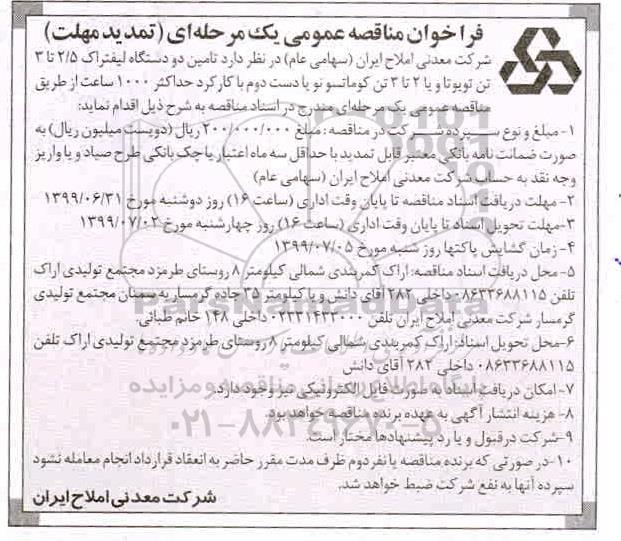 فراخوان مناقصه عمومی یک مرحله‌ای (تمدید مهلت)
شرکت معدنی املاح ایران (سهامی عام) در نظر دارد تامین دو دستگاه لیفتراک ۲/۵ تا ۳
تن تویوتا و یا ۲ تا ۳ تن کوماتسو نو یا دست دوم با کارکرد حداکثر ۱۰۰۰ ساعت از طریق
مناقصه عمومی یک مرحله‌ای مندرج در اسناد مناقصه به شرح ذیل اقدام نماید:
۱- مبلغ و نوع سپرده شرکت در مناقصه : مبلغ ۲۰۰/۰۰۰/۰۰۰ ریال (دویست میلیون ریال) به
صورت ضمانت نامه بانکی معتبر قابل تمدید با حداقل سه ماه اعتبار یا چک بانکی طرح صیاد و یا واریز
وجه نقد به حساب شرکت معدنی املاح ایران (سهامی عام)
۲- مهلت دریافت اسناد مناقصه تا پایان وقت اداری (ساعت ۱۶) روز دوشنبه مورخ ۱۳۹۹/۰۶/۳۱
۳-مهلت تحویل اسناد تا پایان وقت اداری (ساعت ۱۶) روز چهارشنبه مورخ ۱۳۹۹/۰۷/۰۲
۴- زمان گشایش پاکتها روز شنبه مورخ ۱۳۹۹/۰۷/۰۵
۵- محل دریافت اسناد مناقصه: اراک کمربندی شمالی کیلومتر ۸ روستای طرمزد مجتمع تولیدی اراک
تلفن ۰۸۶۳۳۶۸۸۱۱۵ داخلی ۲۸۲ آقای دانش و یا کیلومتر ۳۵ جاده گرمسار به سمنان مجتمع تولیدی
گرمسار شرکت معدنی املاح ایران تلفن ۰۲۳۳۱۴۳۳۰۰۰ داخلی ۱۴۸ خانم طبانی.
۶-محل تحویل اسناد: اراک کمربندی شمالی کیلومتر ۸ روستای طرمزد مجتمع تولیدی اراک تلفن
۰۸۶۳۳۶۸۸۱۱۵ داخلی ۲۸۲ آقای دانش
۷- امکان دریافت اسناد به صورت فایل الکترونیکی نیز وجود دارد.
۸- هزینه انتشار آگهی به عهده برنده مناقصه خواهد بود.
۹-شرکت در قبول و یا رد پیشنهادها مختار است.
۱۰-در صورتی که برنده مناقصه یا نفر دوم ظرف مدت مقرر حاضر به انعقاد قرارداد انجام معامله نشود
سپرده آنها به نفع شرکت ضبط خواهد شد.
شرکت معدنی املاح ایران
۰۲۱-۸۸۳۴۹۶۷۰-۵